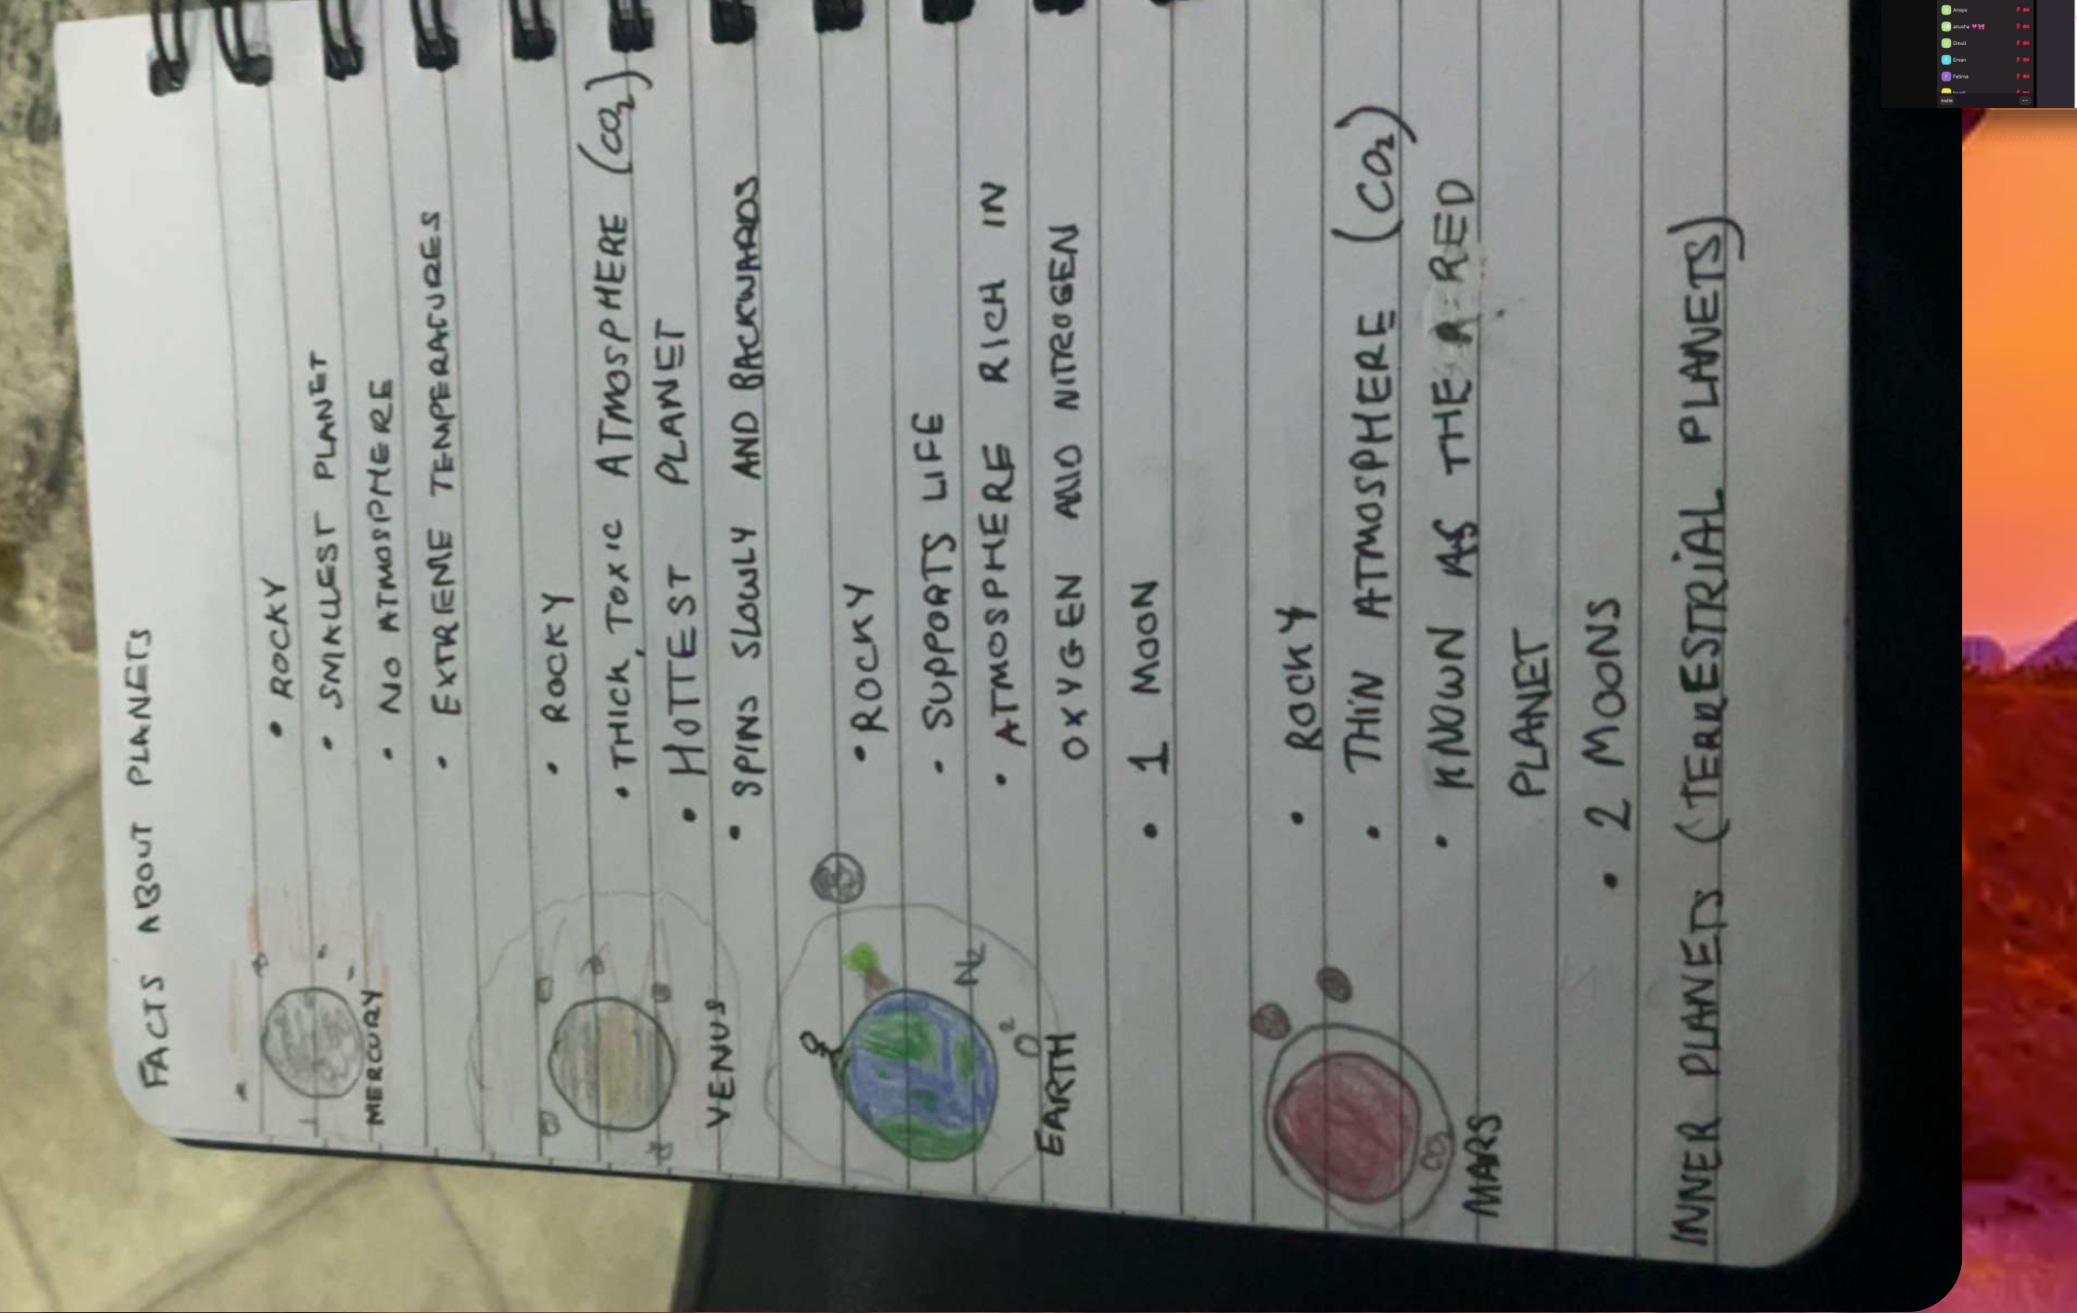 FACTS ABOUT PLANETS
• ROCKY
• SMALLEST PLANET
• NO ATMOSPHERE
• EXTREME TEMPERATURES
MERCURY
• ROCKY
• THICK, TOXIC ATMOSPHERE (CO2)
• HOTTEST PLANET
• SPINS SLOWLY AND BACKWARDS
VENUS
• ROCKY
• SUPPORTS LIFE
• ATMOSPHERE RICH IN
OXYGEN AND NITROGEN
• 1 MOON
N2
O2
EARTH
• ROCKY
• THIN ATMOSPHERE (CO2)
• KNOWN AS THE RED
PLANET
• 2 MOONS
CO2
MARS
INNER PLANETS (TERRESTRIAL PLANETS)
Eman
Fatima
Invite